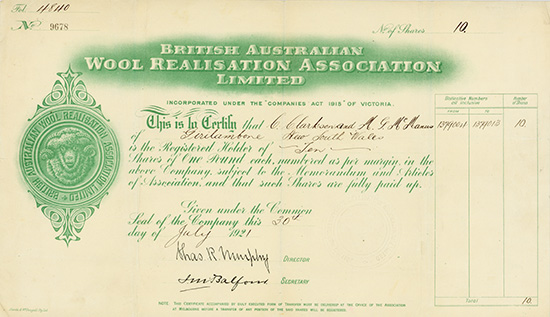 Fol. 4840
No 9678
No. of Shares 10.
BRITISH AUSTRALIAN
WOOL REALISATION ASSOCIATION
LIMITED
INCORPORATED UNDER THE "COMPANIES ACT 1915" OF VICTORIA.
BRITISH AUSTRALIAN WOOL REALISATION ASSOCIATION LIMITED
Distinctive Numbers are inclusive
Number of Shares
This is to Certify that C. Clarkson and M. G. McManus
of Girilambone New South Wales
is the Registered Holder of Ten
Shares of One Pound each, numbered as per margin, in the
above Company, subject to the Memorandum and Articles
of Association, and that such Shares are fully paid up.
10.
Given under the Common
Seal of the Company this 30th
day of July 1921
Chas R. Murphy DIRECTOR
Jno Balfour SECRETARY
NOTE. THIS CERTIFICATE ACCOMPANIED BY DULY EXECUTED FORM OF TRANSFER MUST BE DELIVERED AT THE OFFICE OF THE ASSOCIATION
AT MELBOURNE BEFORE A TRANSFER OF ANY PORTION OF THE SAID SHARES WILL BE REGISTERED.
Total 10.